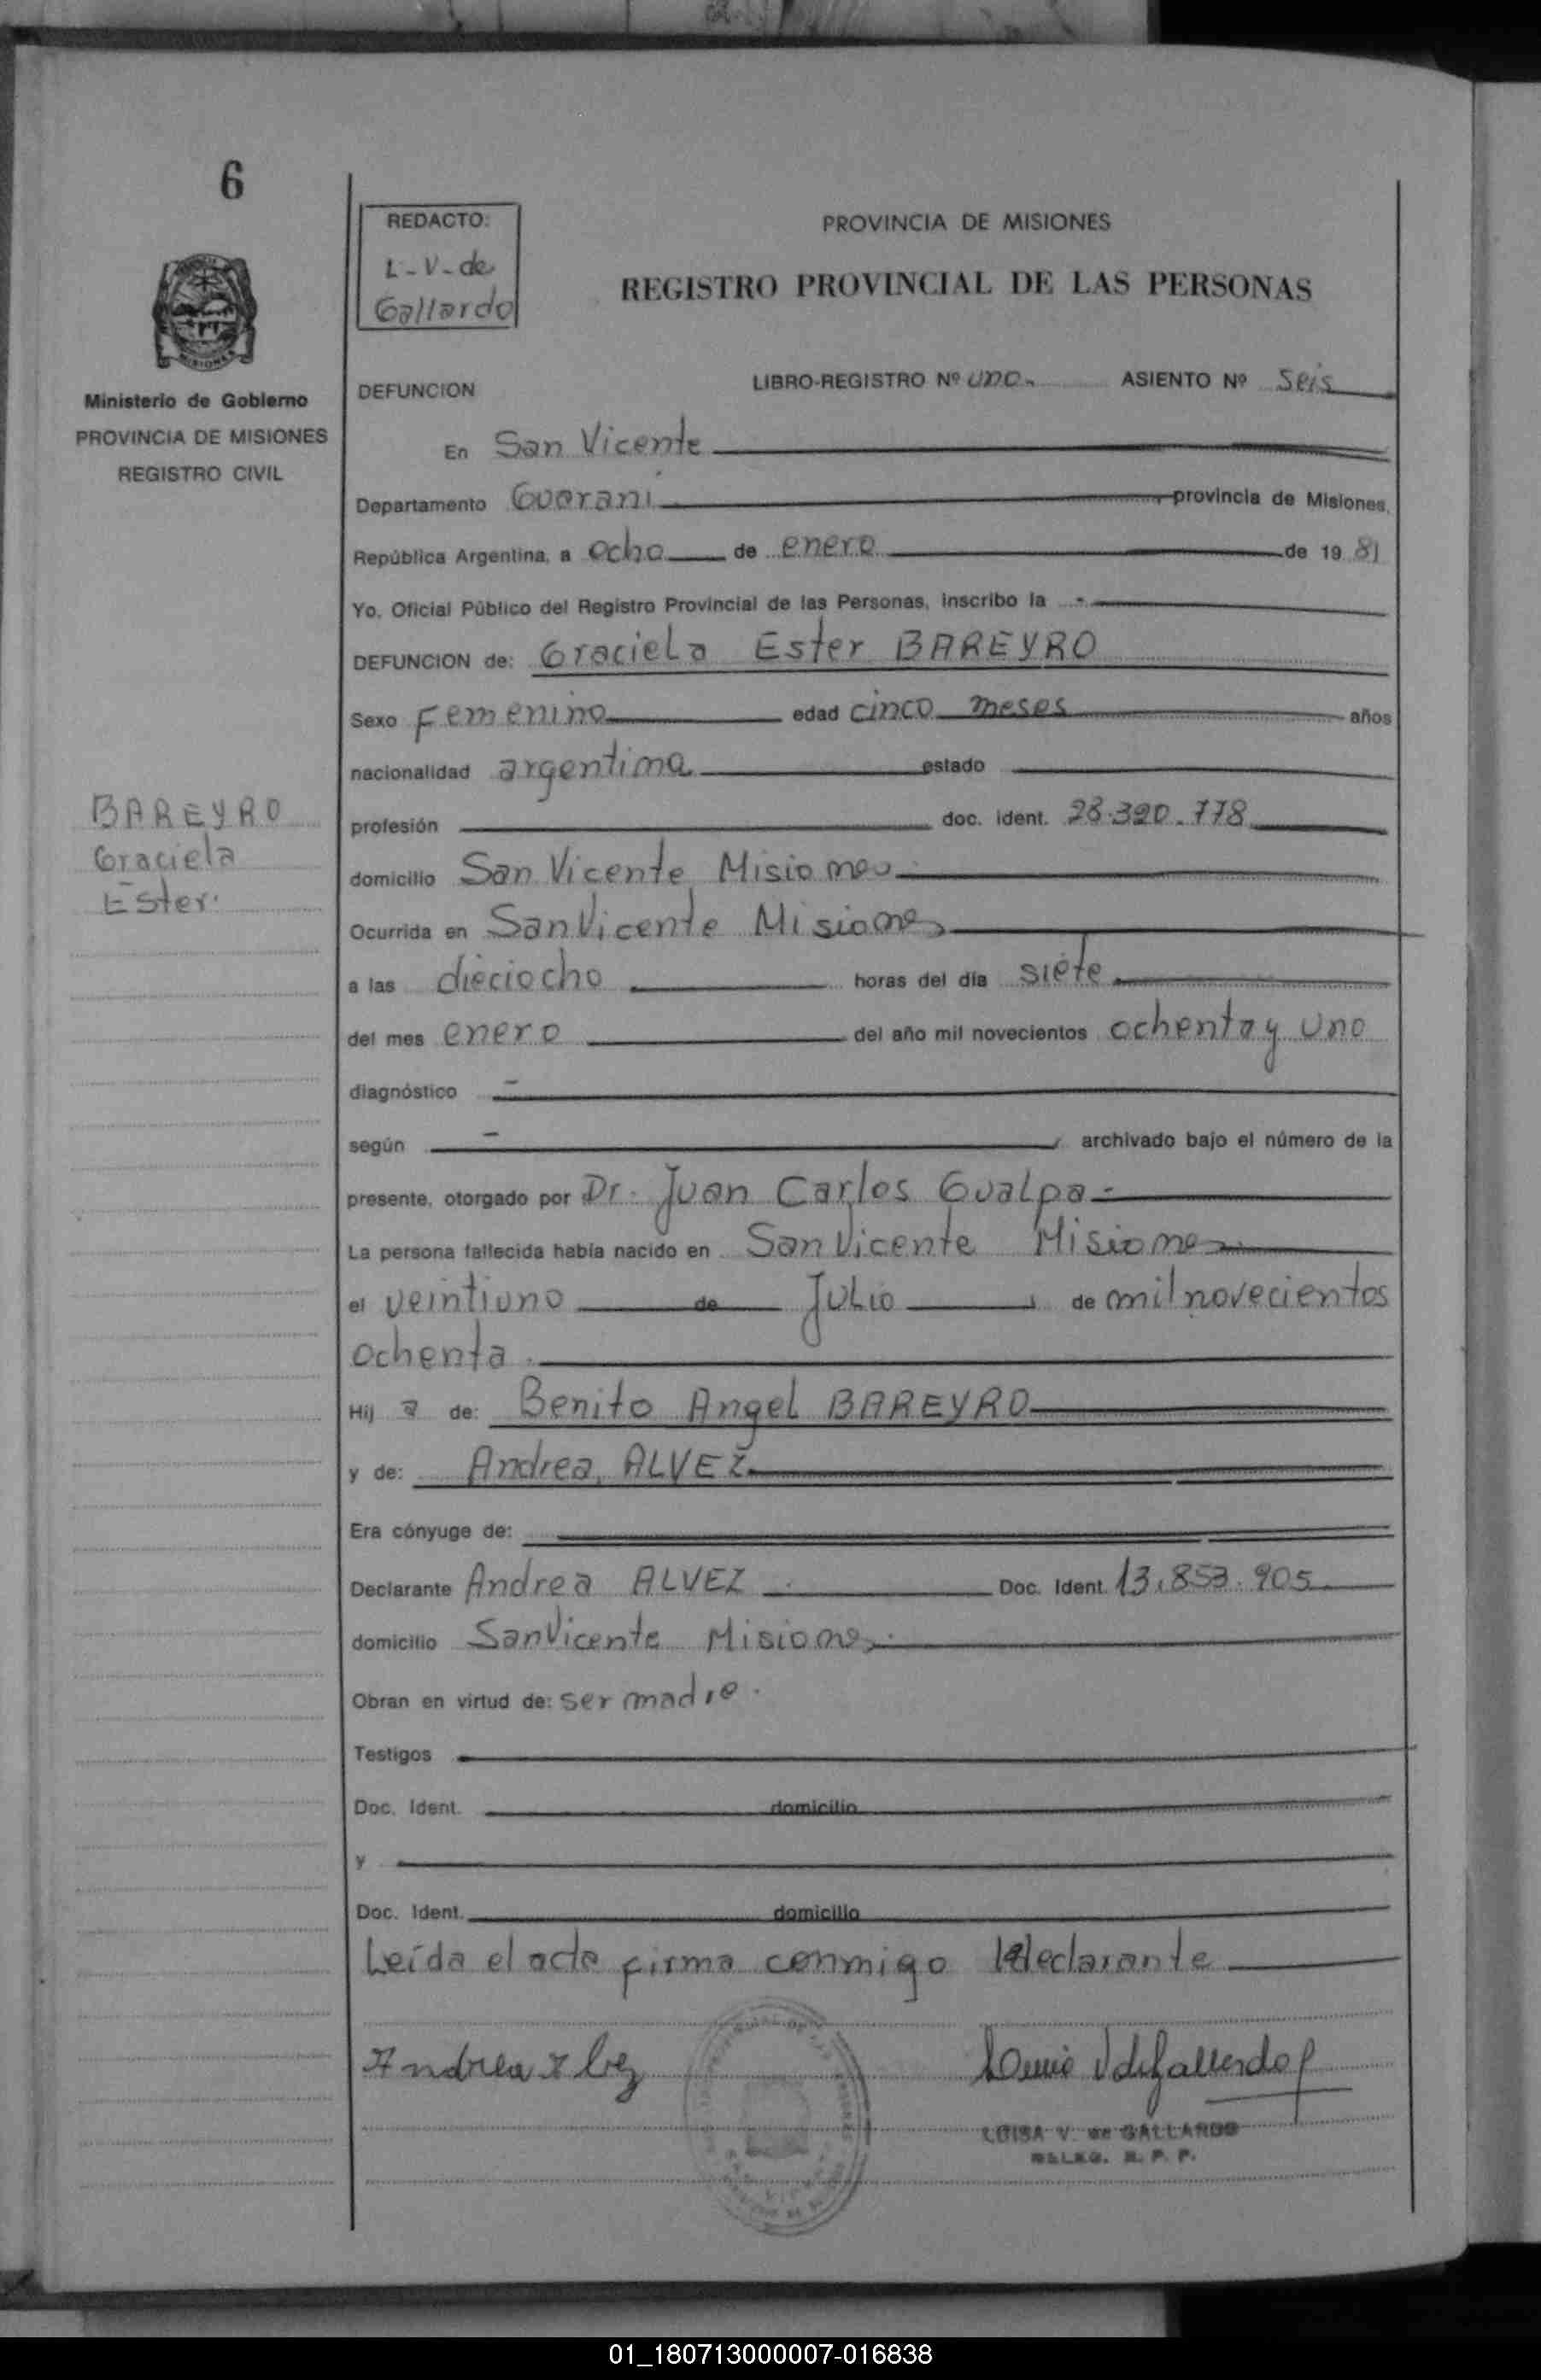 6
REDACTO:
L-V-de
Gallardo
PROVINCIA DE MISIONES
REGISTRO PROVINCIAL DE LAS PERSONAS
Ministerio de Gobierno
PROVINCIA DE MISIONES
REGISTRO CIVIL
DEFUNCION LIBRO-REGISTRO Nº uno. ASIENTO Nº Seis
En San Vicente
Departamento Guarani, provincia de Misiones,
República Argentina, a ocho de enero de 1981
Yo, Oficial Público del Registro Provincial de las Personas, inscribo la -
DEFUNCION de: Graciela Ester BAREYRO
Sexo Femenino edad cinco meses años
nacionalidad argentina estado
profesión doc. ident. 28.390.778
domicilio San Vicente Misiones
Ocurrida en San Vicente Misiones
a las dieciocho horas del día siete
del mes enero del año mil novecientos ochenta y uno
diagnóstico -
según - , archivado bajo el número de la
presente, otorgado por Dr. Juan Carlos Gualpa-
La persona fallecida había nacido en San Vicente Misiones
el veintiuno de Julio de mil novecientos
ochenta.
Hij a de: Benito Angel BAREYRO
y de: Andrea ALVEZ
Era cónyuge de:
Declarante Andrea ALVEZ Doc. Ident. 13.853.905
domicilio San Vicente Misiones
Obran en virtud de: ser madre.
Testigos
Doc. Ident. domicilio
y
Doc. Ident. domicilio
Leída el acta firma conmigo la declarante
BAREYRO
Graciela
Ester.
Andrea Alvez
LUISA V. de GALLARDO
DELEG. R. P. P.
01_180713000007-016838